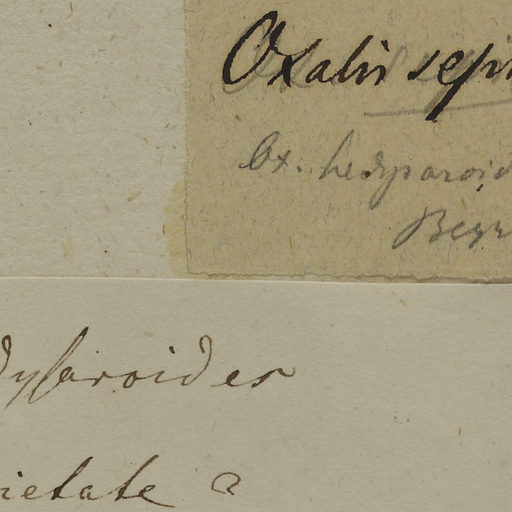 Oxalis sepi
Ox. hedysaroid
Beyr
dysaroides
ietate ?